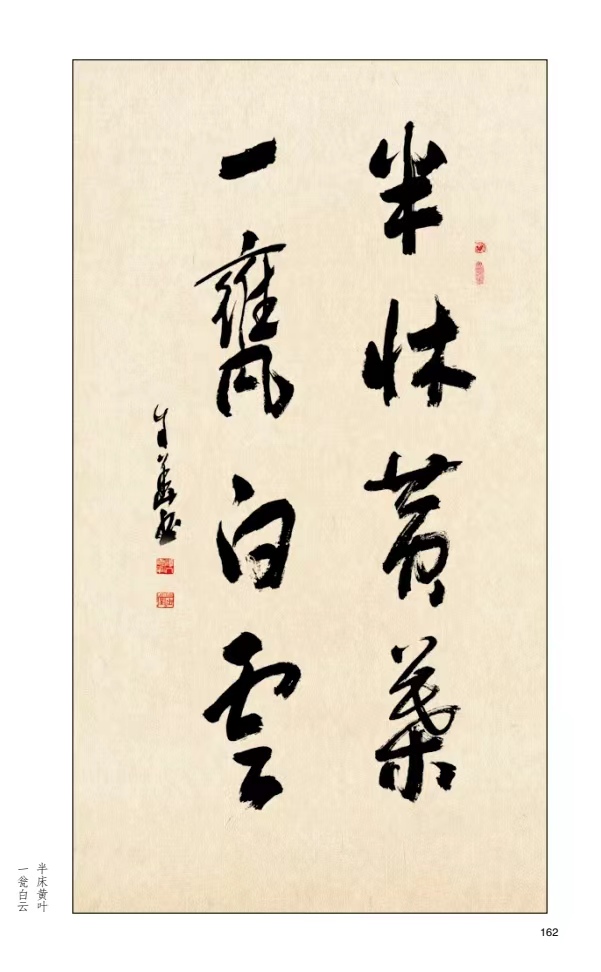 半牀黄葉
一甕白雲
半床黄叶
一瓮白云
162